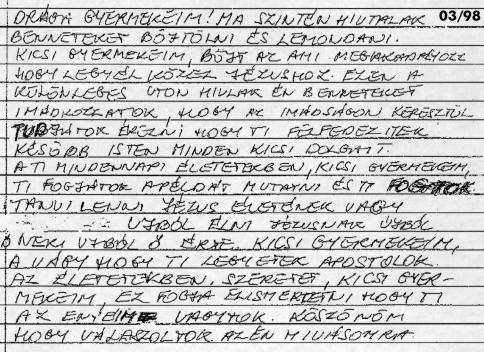 DRÁGA GYERMEKEIM! MA SZINTÉN HIVTALAK 03/98
BENNETEKET BÖJTÖLNI ÉS LEMONDANI.
KICSI GYERMEKEIM, BÖJT AZ AMI MEGAKADÁLYOZZ
HOGY LEGYÉL KÖZEL JÉZUSHOZ. EZEN A
KÜLÖNLEGES UTON HIVLAK ÉN BENNETEKET
IMÁDKOZZATOK, HOGY AZ IMÁDSÁGON KERESZTÜL
TUDJÁTOK ÉREZNI HOGY TI FELFEDEZITEK
KÉSÖBB ISTEN MINDEN KICSI DOLGAIT.
A TI MINDENNAPI ÉLETETEKBEN, KICSI GYERMEKEIM,
TI FOGJÁTOK A PÉLDÁT MUTATNI ÉS TI FOGJÁTOK
TANUI LENNI JÉZUS ÉLETÉNEK VAGY
UJBÓL ÉLNI JÉZUSNAK UJBÓL
NEKI UJBÓL Ö ÉRTE. KICSI GYERMEKEIM,
A VÁGY HOGY TI LEGYETEK APOSTOLOK.
AZ ÉLETETEKBEN. SZERETET, KICSI GYER-
MEKEIM, EZ FOGJA ELISMERTETNI HOGY TI
AZ ENYEIM VAGYTOK. KÖSZÖNÖM
HOGY VÁLASZOLTOK AZ ÉN HIVÁSOMRA